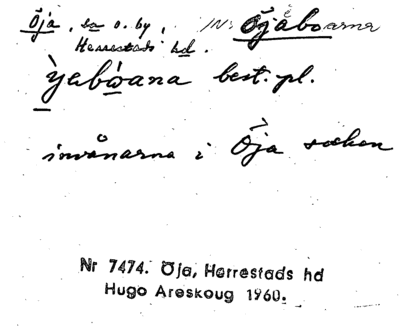 Öja, sn o. by, IN: Öjaboarna
Herrestads hd.
Yabwana best. pl.
invånarna i Öja socken
Nr 7474. Öja, Herrestads hd
Hugo Areskoug 1960.